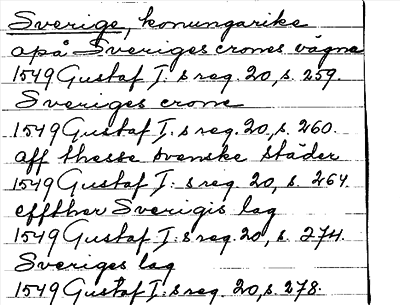 Sverige, konungarike
opå Sveriges crones vägna
1549 Gustaf I: s reg. 20, s. 259.
Sveriges crone
1549 Gustaf I: s reg. 20, s. 260.
aff thesse svenske städer
1549 Gustaf I: s reg. 20, s. 264.
effther Sverigis lag
1549 Gustaf I: s reg. 20, s. 274.
Sveriges lag
1549 Gustaf I: s reg. 20, s. 278.